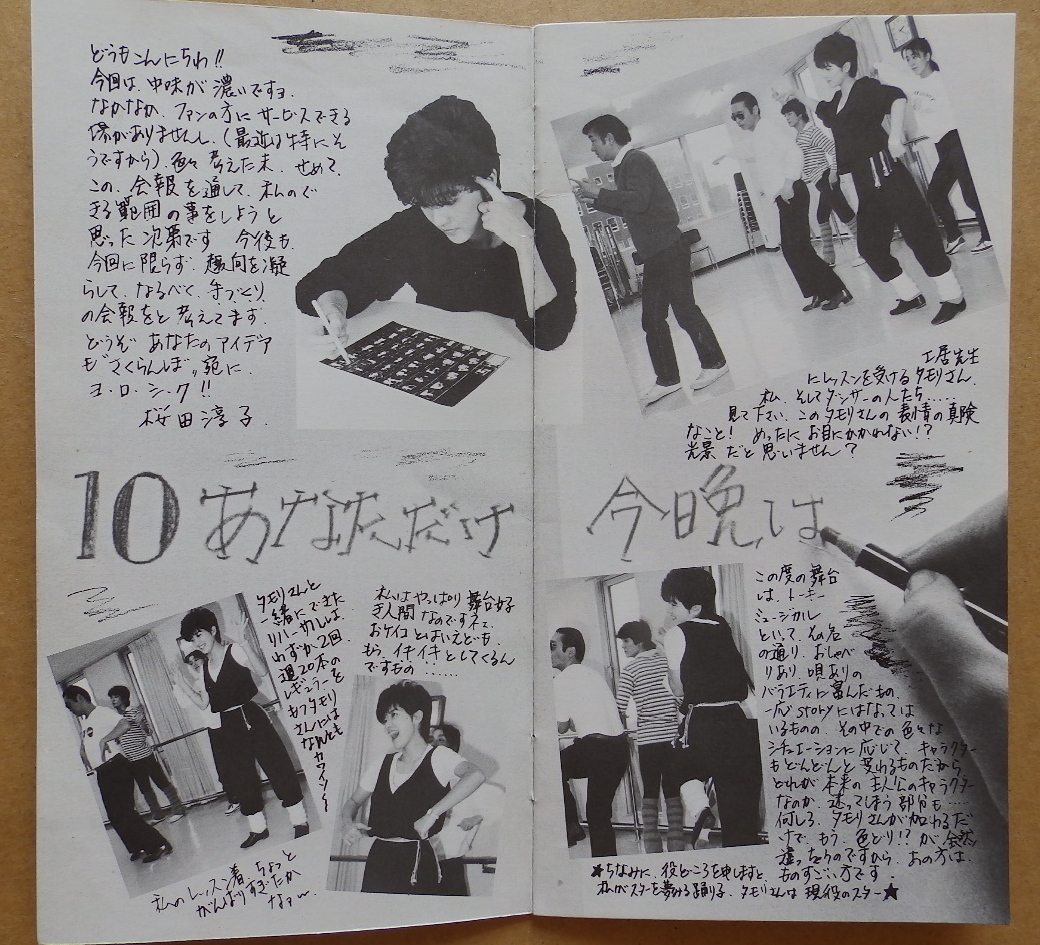 どうもこんにちわ!!
今回は、中味が濃いですョ。
なかなか、ファンの方にサービスできる
場がありませんし、(最近は特にそ
うですから)、色々考えた末、せめて、
この、会報を通して、私ので
きる範囲の事をしようと
思った次第です 今後も、
今回に限らず、趣向を凝
らして、なるべく、手づくり
の会報をと考えてます。
どうぞ あなたのアイデア
も"さくらんぼ"宛に、
ヨ・ロ・シ・ク!!
桜田淳子.
土居先生
にレッスンを受けるタモリさん、
私、そしてダンサーの人たち……
見て下さい、このタモリさんの表情の真険
なこと! めったにお目にかかれない!?
光景だと思いません?
10 あなただけ 今晩は
タモリさんと
一緒にできた
リハーサルは、
わずか2回
週20本の
レギュラーを
もつタモリ
さんには
なんとも
カワイソー!
私はやっぱり舞台好
き人間なのですネェ
おケイコとはいえども、
もう、イキイキとしてくるん
ですもの……
私のレッスン着、ちょっと
がんばりすぎたか
なァ〜
この度の舞台
は、トーキー
ミュージカル
といって、その名
の通り、おしゃべ
りあり、唄ありの
バラエティに富んだもの、
一応storyにはなっては
いるものの、その中での色々な
シチュエーションに応じて、キャラクター
もどんどんと変わるものだから、
どれが本来の主人公のキャラクター
なのか、迷ってしまう部分も……
何しろ、タモリさんが加わるだ
けで、もう、色どり!?が、全然
違っちうのですから、あの方は、
ものすごい方です。
★ちなみに、役どころを申しますと、
私がスターを夢みる踊り子、タモリさんは現役のスター★